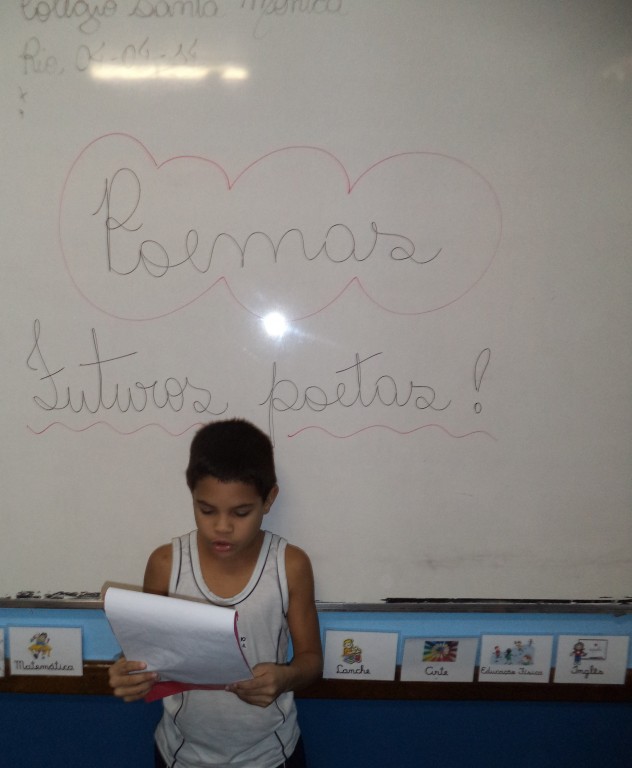 Colégio Santa Mônica
Rio,
Poemas
Futuros poetas!
Matemática
Lanche
Arte
Educação Física
Inglês